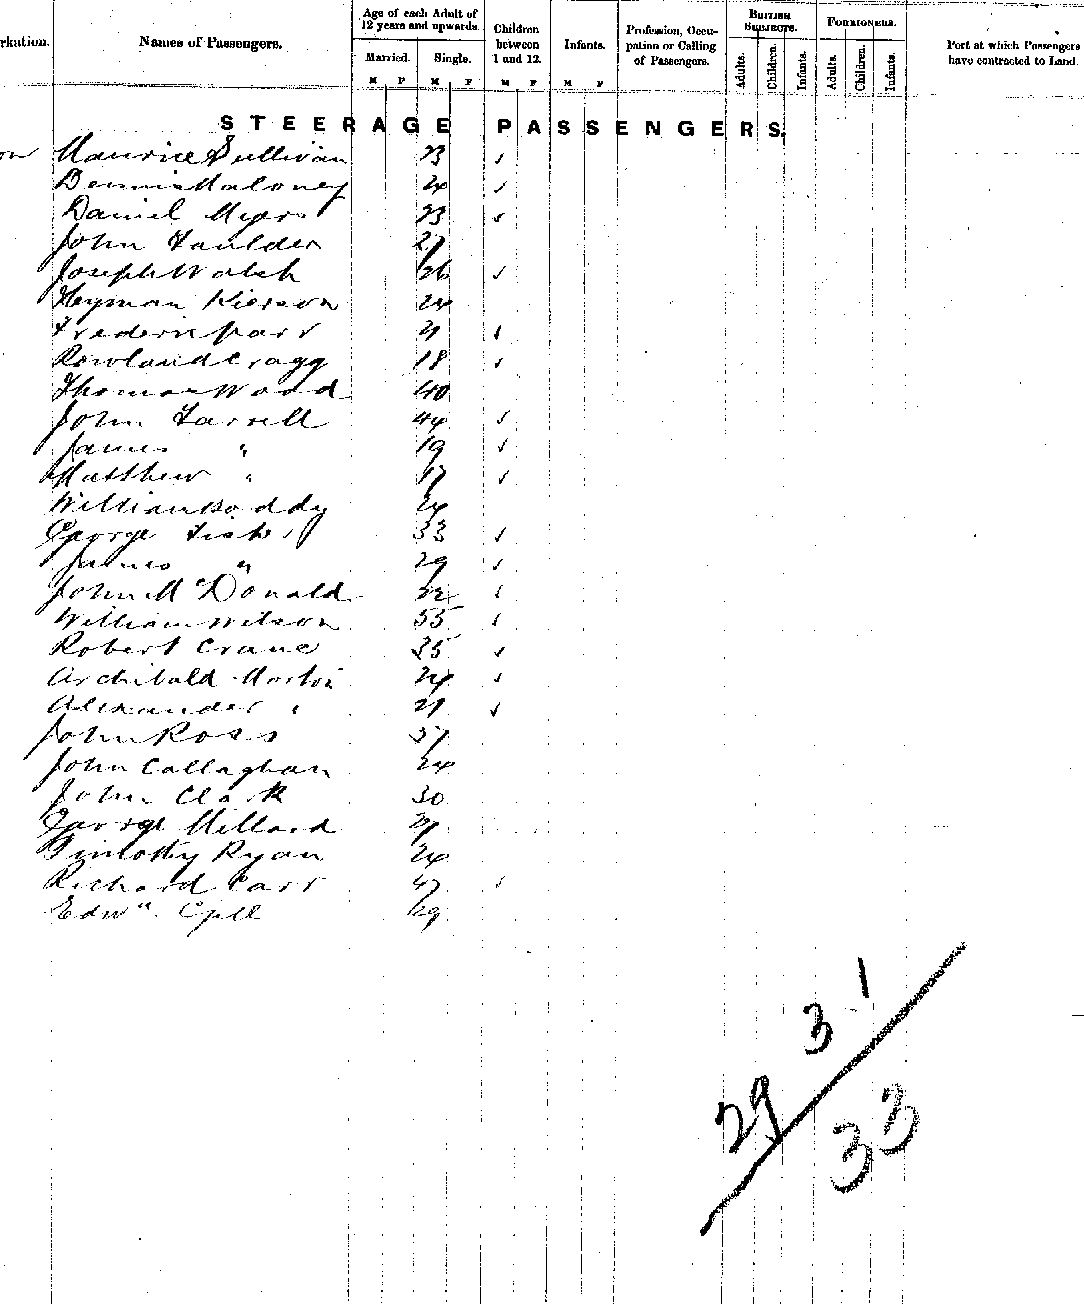 rkation.
Names of Passengers.
Age of each Adult of 12 years and upwards.
Married.
Single.
M F M F
Children between 1 and 12.
M F
Infants.
M F
Profession, Occupation or Calling of Passengers.
BRITISH SUBJECTS.
Adults. Children. Infants.
FOREIGNERS.
Adults. Children. Infants.
Port at which Passengers have contracted to Land.
STEERAGE PASSENGERS
Maurice Sullivan 23 ✓
Dennis Maloney 24 ✓
Daniel Myers 23 ✓
John Faulder 27
Joseph Walsh 26 ✓
Heyman Kierson 24
Frederic Parr 21 ✓
Rowland Cragg 18 ✓
Thomas Wood 40
John Farrell 44 ✓
James " 19 ✓
Matthew " 17 ✓
William Boddy 24
George Fisher 33 ✓
James " 29 ✓
John McDonald 32 ✓
William Wilson 55 ✓
Robert Crane 35 ✓
Archibald Morton 24 ✓
Alexander " 21 ✓
John Ross 31
John Callaghan 24
John Clark 30
George Millard 21
Timothy Ryan 24
Richard Carr 47 ✓
Edwd. 29
3 1
29
33